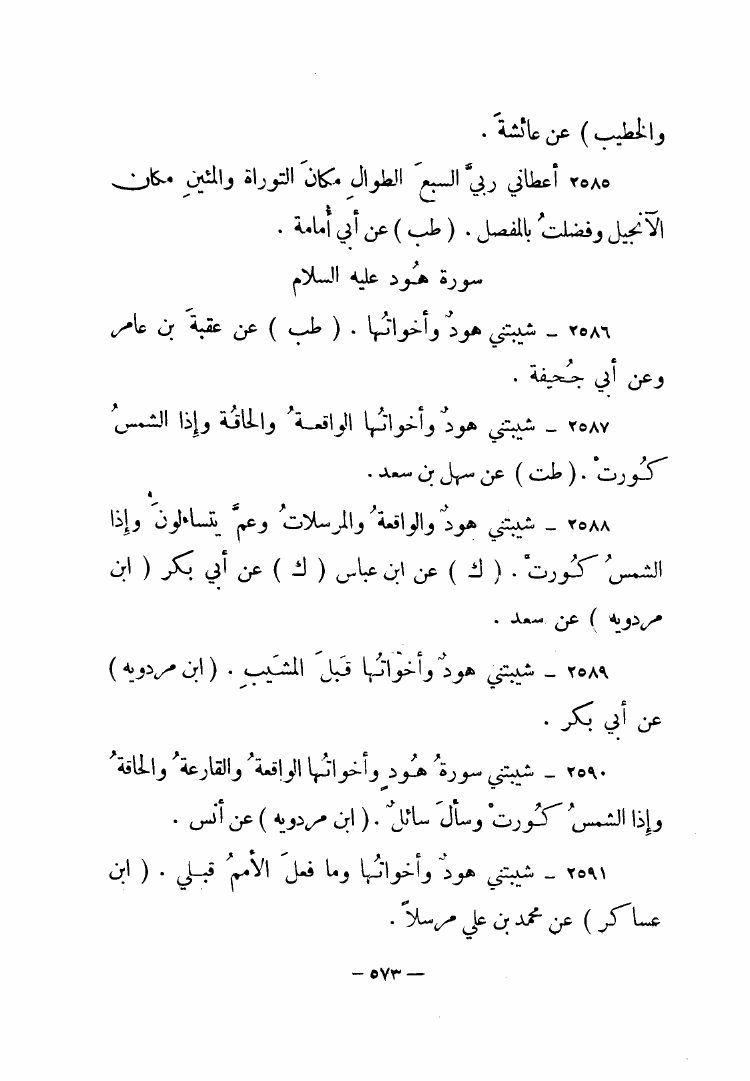 والخطيب ) عن عائشةَ .
٢٥٨٥ أعطاني ربيَّ السبعَ الطوالِ مكانَ التوراة والمئينِ مكان
الآنجيل وفضلتُ بالمفصل . ( طب ) عن أبي أُمامة .
سورة هُود عليه السلام
٢٥٨٦ ـ شيبتني هودٌ وأخواتُها . ( طب ) عن عقبةَ بن عامر
وعن أبي جُحيفة .
٢٥٨٧ ـ شيبتني هودٌ وأخواتُها الواقعةُ والحاقُة وإذا الشمسُ
كُورتْ . ( طت ) عن سهل بن سعد .
٢٥٨٨ ـ شيبتني هودٌ والواقعةُ والمرسلاتُ وعمَّ يتساءلونَ وإذا
الشمسُ كُورتْ . ( ك ) عن ابن عباس ( ك ) عن أبي بكر ( ابن
مردويه ) عن سعد .
٢٥٨٩ ـ شيبتني هودٌ وأخواتُها قبلَ المشَيبِ . ( ابن مردويه )
عن أبي بكر .
٢٥٩٠ ـ شيبتني سورةُ هُودٍ وأخواتُها الواقعةُ والقارعةُ والحاقةُ
وإذا الشمسُ كُورتْ وسألَ سائلٌ . ( ابن مردويه ) عن أنس .
٢٥٩١ ـ شيبتني هودٌ وأخواتُها وما فعلَ الأممُ قبلي . ( ابن
عساكر ) عن محمد بن علي مرسلاً .
— ٥٧٣ —